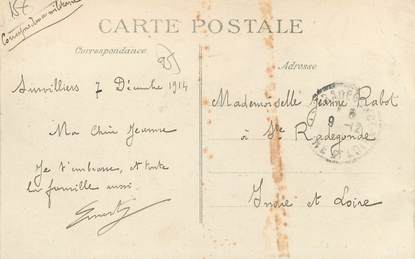 15 f
Correspondance militaire
CARTE POSTALE
Correspondance
95
Adresse
Survilliers 7 Décembre 1914
Ma Chère Jeanne
Je t'embrasse, et toute
la famille aussi.
Mademoiselle Jeanne Rabot
à Ste Radegonde
Indre et Loire